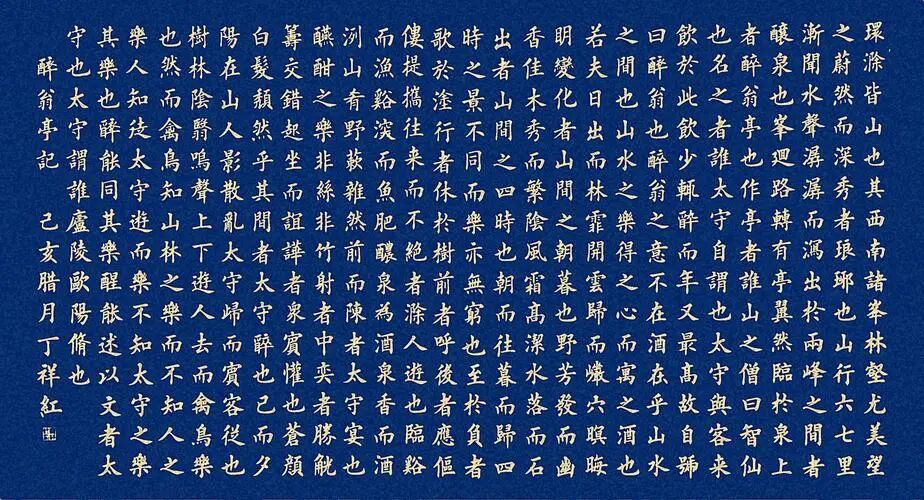 環滁皆山也其西南諸峯林壑尤美望
之蔚然而深秀者琅琊也山行六七里
漸聞水聲潺潺而瀉出於兩峰之間者
釀泉也峯迴路轉有亭翼然臨於泉上
者醉翁亭也作亭者誰山之僧曰智仙
也名之者誰太守自謂也太守與客來
飲於此飲少輒醉而年又最高故自號
曰醉翁也醉翁之意不在酒在乎山水
之間也山水之樂得之心而寓之酒也
若夫日出而林霏開雲歸而巖穴暝晦
明變化者山間之朝暮也野芳發而幽
香佳木秀而繁陰風霜高潔水落而石
出者山間之四時也朝而往暮而歸四
時之景不同而樂亦無窮也至於負者
歌於塗行者休於樹前者呼後者應傴
僂提攜往來而不絕者滁人遊也臨谿
而漁谿深而魚肥釀泉為酒泉香而酒
洌山肴野蔌雜然前而陳者太守宴也
醼酣之樂非絲非竹射者中奕者勝觥
籌交錯起坐而諠譁者眾賓懽也蒼顏
白髮頹然乎其間者太守醉也已而夕
陽在山人影散亂太守歸而賓客從也
樹林陰翳鳴聲上下遊人去而禽鳥樂
也然而禽鳥知山林之樂而不知人之
樂人知從太守遊而樂不知太守之樂
其樂也醉能同其樂醒能述以文者太
守也太守謂誰廬陵歐陽脩也
醉翁亭記 己亥腊月丁祥紅